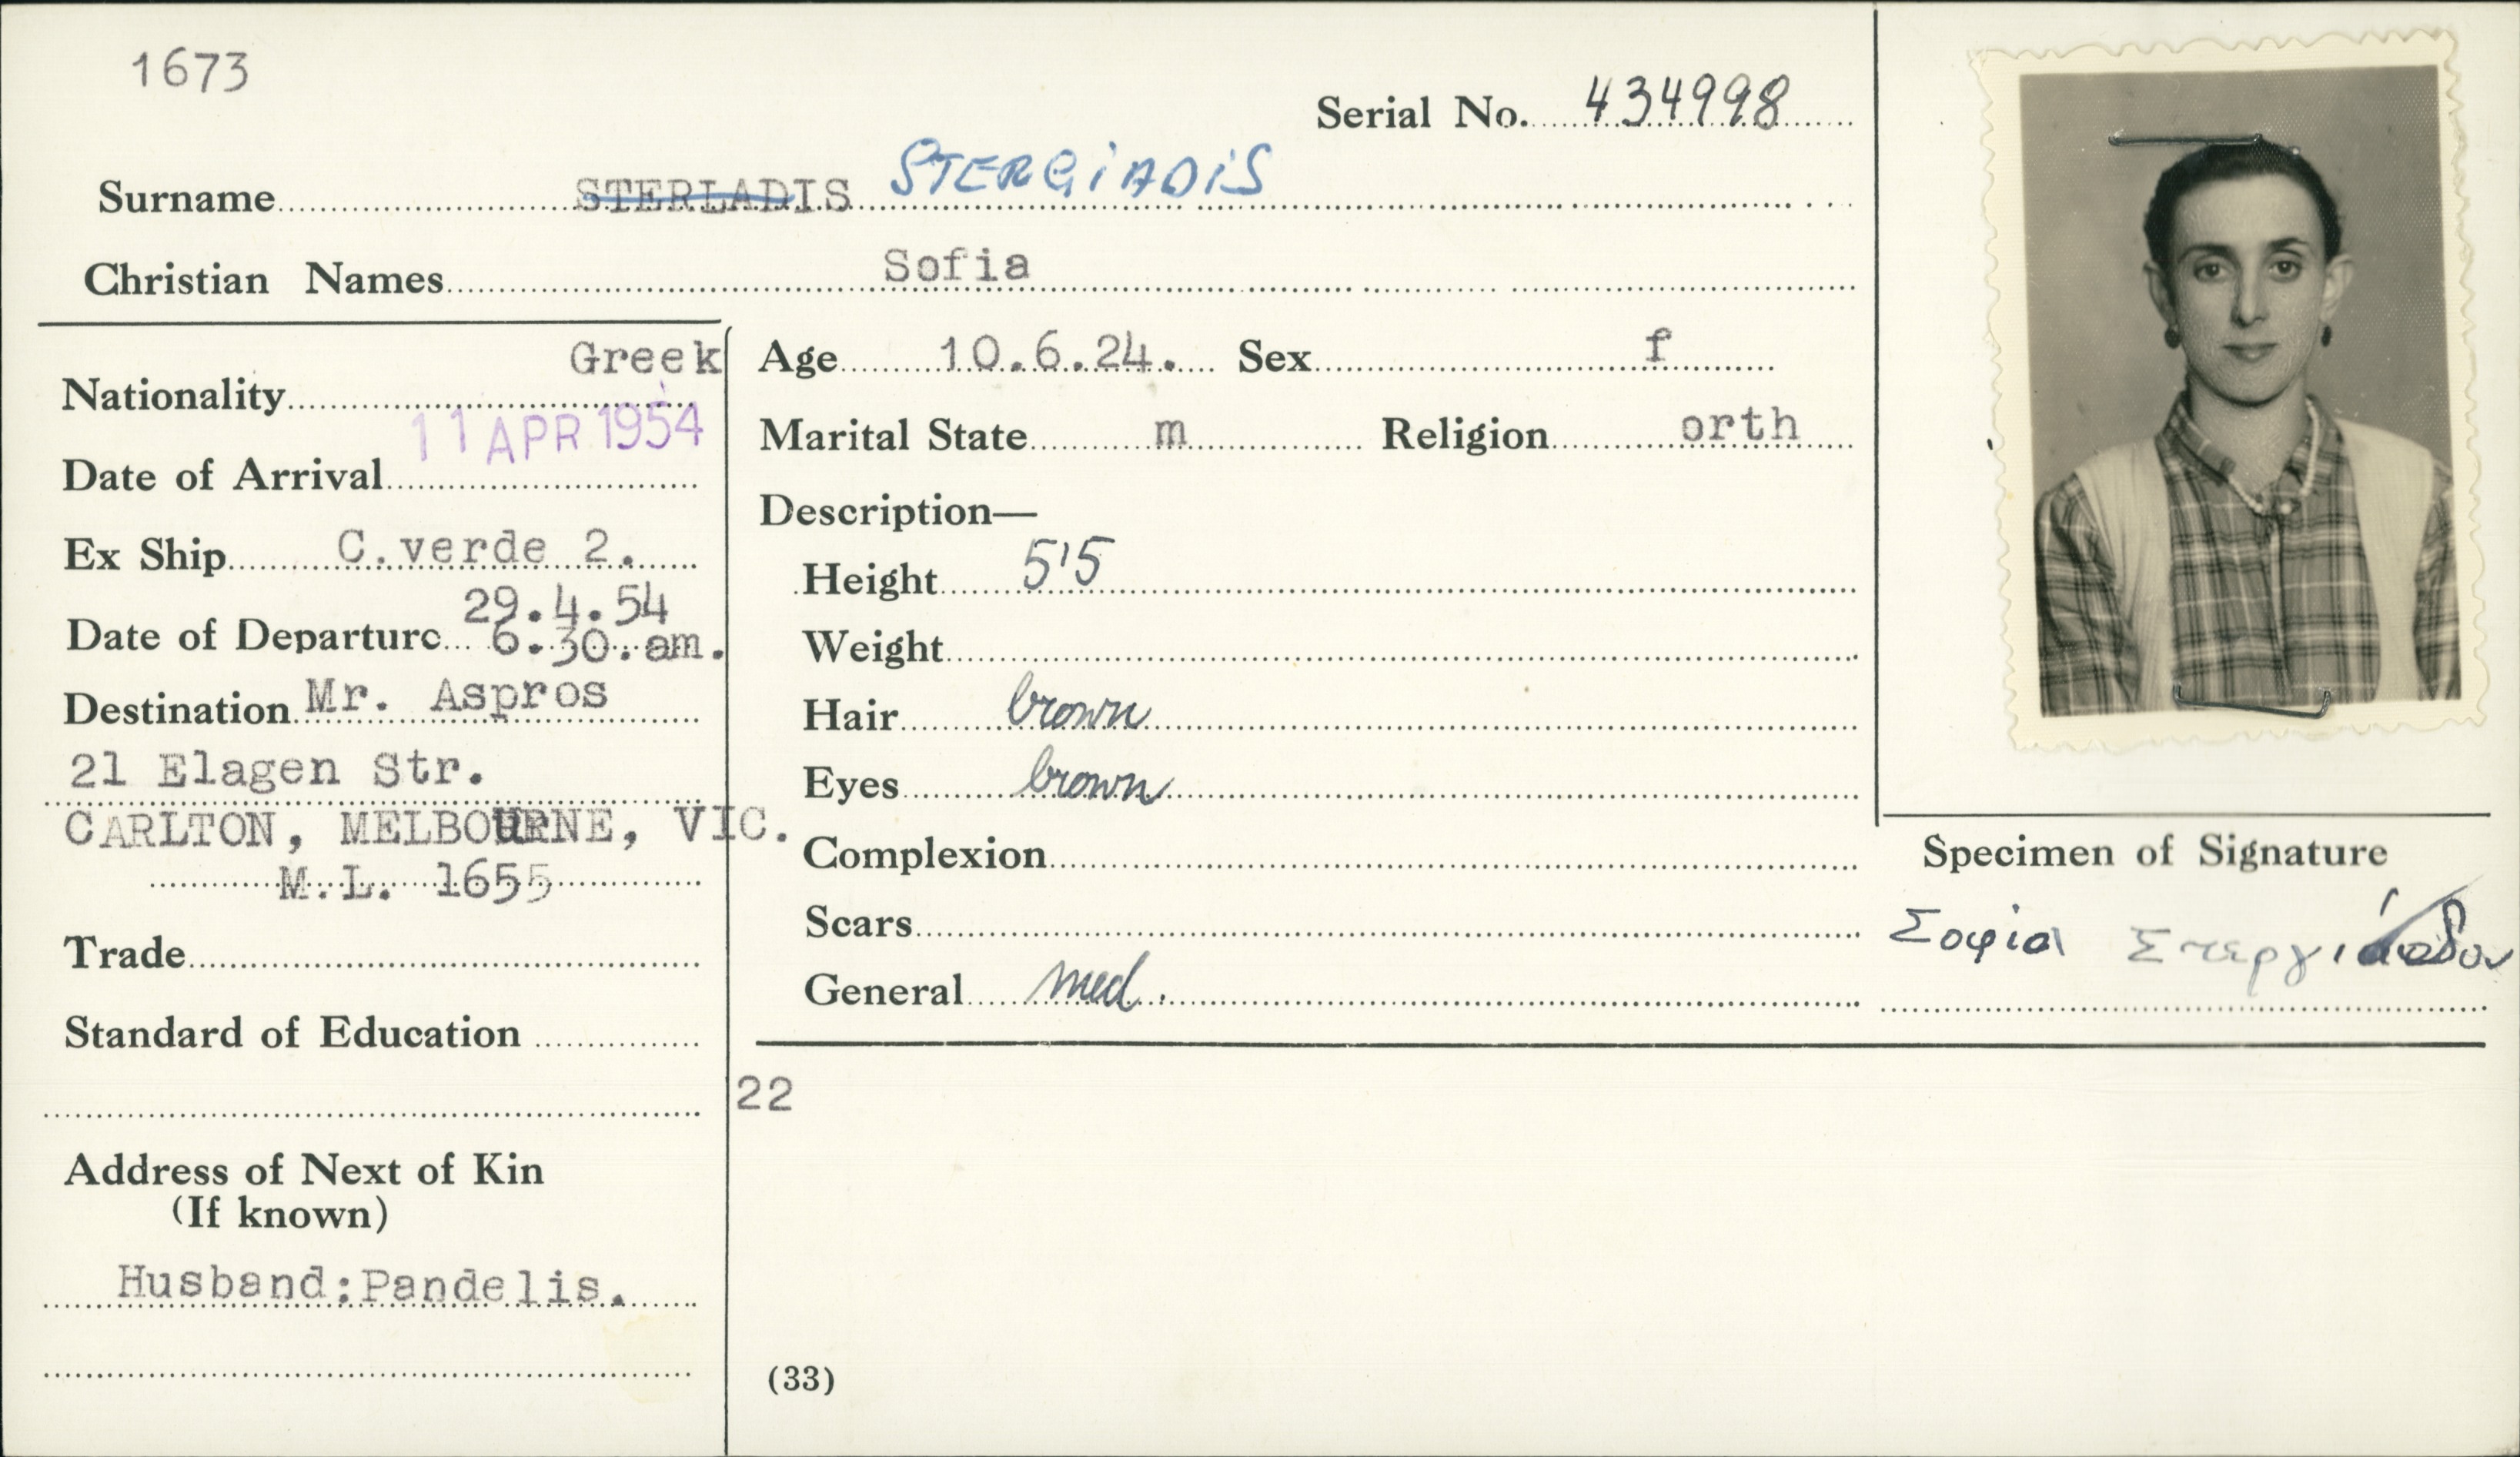 1673
Serial No. 434998
Surname STERLADIS STERGiADiS
Christian Names Sofia
Nationality Greek
Date of Arrival 11 APR 1954
Ex Ship C.verde 2.
Date of Departure 29.4.54
6.30.am.
Destination Mr. Aspros
21 Elagen Str.
CARLTON, MELBOURNE, VIC.
M.L. 1655
Trade
Standard of Education
Address of Next of Kin
(If known)
Husband:Pandelis.
Age 10.6.24. Sex f
Marital State m Religion orth
Description—
Height 5'5
Weight
Hair brown
Eyes brown
Complexion
Scars
General med.
22
(33)
Specimen of Signature
Σοφία Στεργιάδου